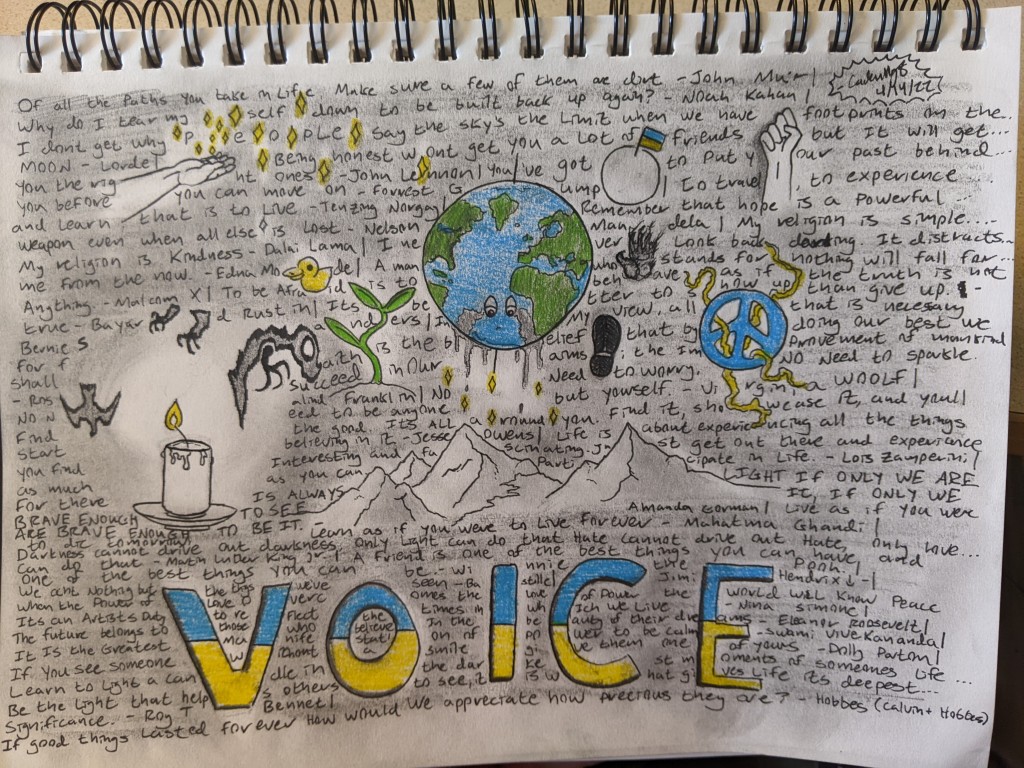 Of all the Paths you take in Life Make sure a few of them are dirt - John Muir |
Why do I tear my self down to be built back up again? - Noah Kahan |
I dont get why people say the sky's the Limit when we have footprints on the...
MOON - Lorde | Being honest wont get you a Lot of friends but It will get...
you the right ones - John Lennon | you've got to Put your past behind...
you before you can move on - Forrest Gump | To travel, to experience
and Learn that is to Live - Tenzing Norgay | Remember that hope is a Powerful
weapon even when all else is Lost - Nelson Mandela | My religion is simple....
My religion is Kindness - Dalai Lama | I never Look back darling. It distracts...
me from the now. - Edna Mode | A man who stands for nothing will fall for...
Anything - Malcom X | To be Afraid is to behave as if the truth is not
true - Bayard Rustin | Its better to show up than give up. -
Bernie S anders | In My view, all that is necesary
for f aith is the belief that by doing our best we
shall succeed in our aims: the Improvement of mankind
- Ros alind Franklin | NO Need to worry. NO need to sparkle.
NO N eed to be anyone but yourself. - Virginia WOOLF |
Find the good. ITS ALL around you. Find it, showcase It, and youll
start believing in it - Jesse Owens | Life is about experiencing all the things
you find Interesting and fascinating. Just get out there and experience
as much as you can Participate in Life. - Lois Zamperini |
For there IS ALWAYS LIGHT IF ONLY WE ARE
BRAVE ENOUGH TO SEE IT, IF ONLY WE
ARE BRAVE ENOUGH TO BE IT. Amanda Gorman | Live as if you were
to die tomorrow Learn as if you were to Live forever - Mahatma Ghandi |
Darkness cannot drive out darkness. Only Light can do that Hate cannot drive out Hate, only Love...
can do that - Martin Luther King Jr | A friend is one of the best things you can have, and
One of the best things you can be. - Winnie the Pooh |
Jimi Hendrix
When the Power of Love world will Know Peace
Its an Artists Duty to reflect the times in which we Live - Nina Simone |
The future belongs to those who believe in the beauty of their dreams - Eleanor Roosevelt |
It Is the Greatest - Swami Vivekananda |
If you see someone without a smile give them one of yours - Dolly Parton |
Learn to Light a candle in the darkest moments of someones Life...
Be the Light that helps others to see, it is what gives Life its deepest...
Significance. - Roy T Bennet |
If good things Lasted forever How would we appreciate how Precious they are? - Hobbes (Calvin + Hobbes)
VOICE